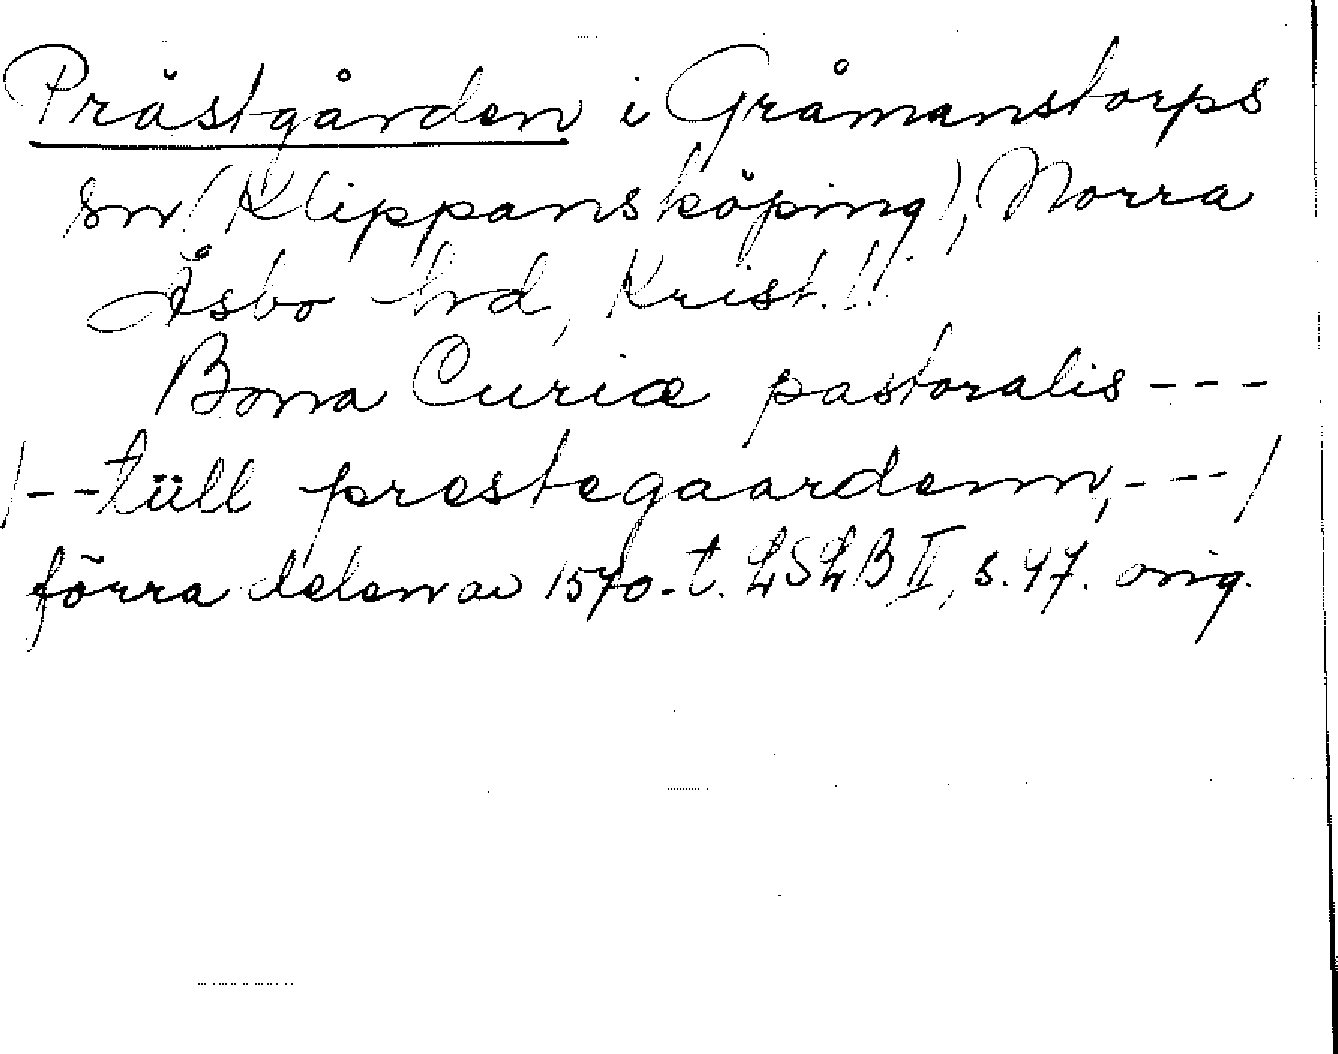 Prästgården i Gråmanstorps
sn (Klippans köping), Norra
Åsbo hrd, Krist. l.
Bona Curiæ pastoralis ---
/--tüll prestegaardenn, ---/
förra delen av 1570-t. LSLB II, s. 47. orig.